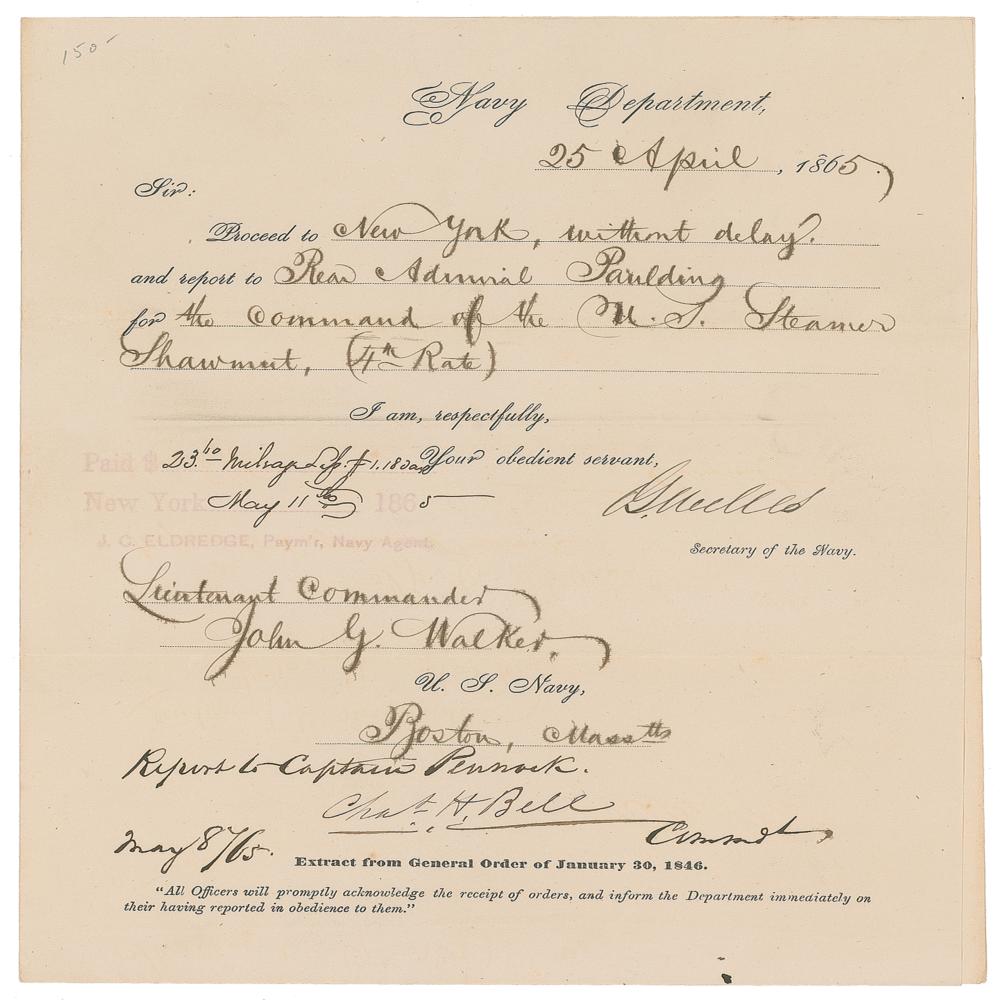 150-
Navy Department,
25 April, 1865.
Sir:
Proceed to New York, without delay.
and report to Rear Admiral Paulding
for the command of the U. S. Steamer
Shawmut, (4th Rate)
I am, respectfully,
Your obedient servant,
Paid $ 23.40 Milage
New York May 11th 1865
G Welles
J. C. ELDREDGE, Paym'r, Navy Agent.
Secretary of the Navy.
Lieutenant Commander
John G. Walker,
U. S. Navy,
Boston, Masstts
Report to Captain Pennock.
Chas. H. Bell
Commdt
May 8/65.
Extract from General Order of January 30, 1846.
"All Officers will promptly acknowledge the receipt of orders, and inform the Department immediately on
their having reported in obedience to them."